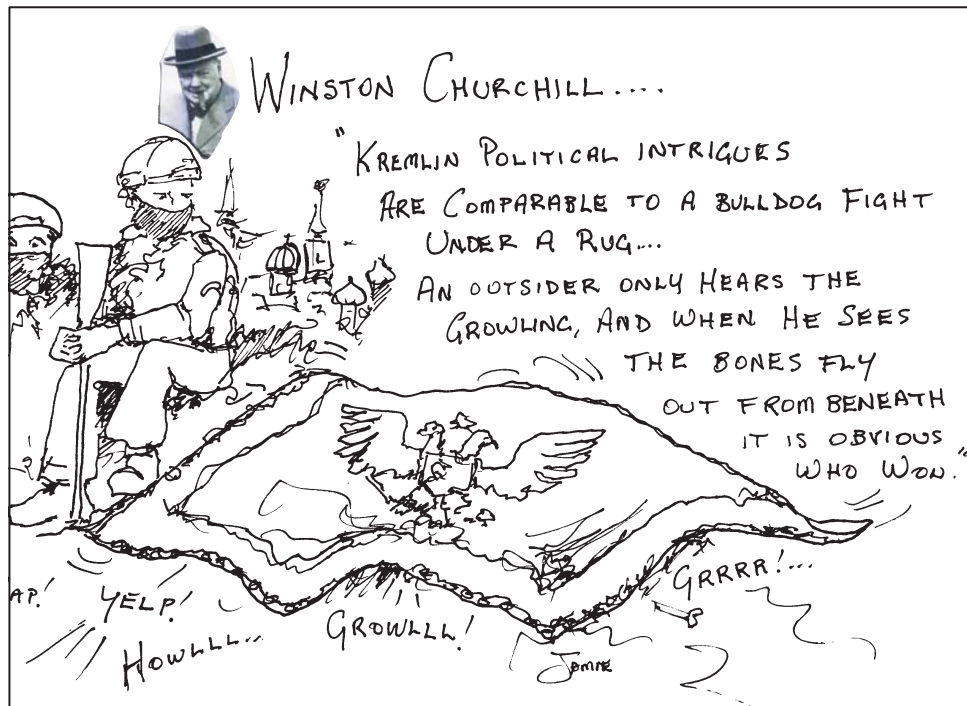 WINSTON CHURCHILL....
"KREMLIN POLITICAL INTRIGUES
ARE COMPARABLE TO A BULLDOG FIGHT
UNDER A RUG...
AN OUTSIDER ONLY HEARS THE
GROWLING, AND WHEN HE SEES
THE BONES FLY
OUT FROM BENEATH
IT IS OBVIOUS
WHO WON."
GRRRR!....
AP!
YELP!
GROWLLL!
HOWLLL...
Jamie